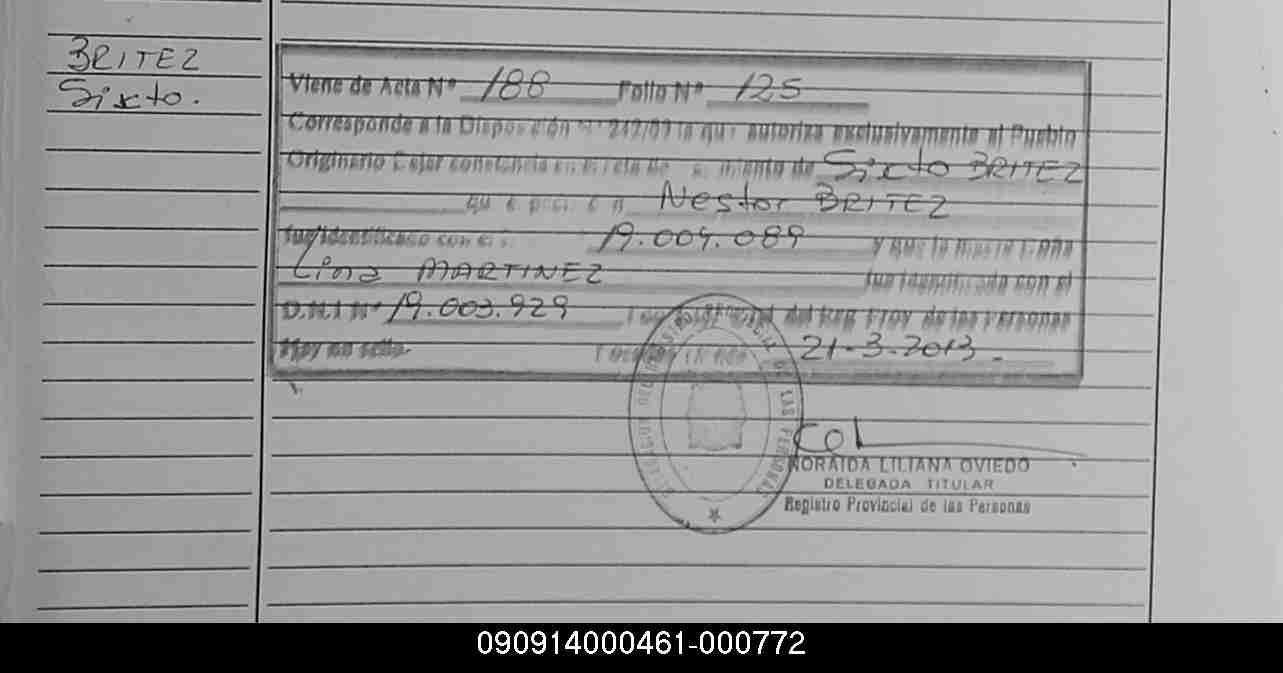 BRITEZ
Sixto.
Viene de Acta Nº 188 Folio Nº 125
Corresponde a la Disposición Nº 242/09 la que autoriza exclusivamente al Pueblo
Originario Dejar constancia en el Acta de miento de Sixto BRITEZ
que Nestor BRITEZ
fue identificado con el 19.004.089 y que la misma
Lina MARTINEZ fue identificada con el
D.N.I Nº 19.003.929 del Reg Prov de las Personas
Hay un sello. 21-3-2013.
DELEGACION DEL REGISTRO PROVINCIAL DE LAS PERSONAS
NORAIDA LILIANA OVIEDO
DELEGADA TITULAR
Registro Provincial de las Personas
090914000461-000772